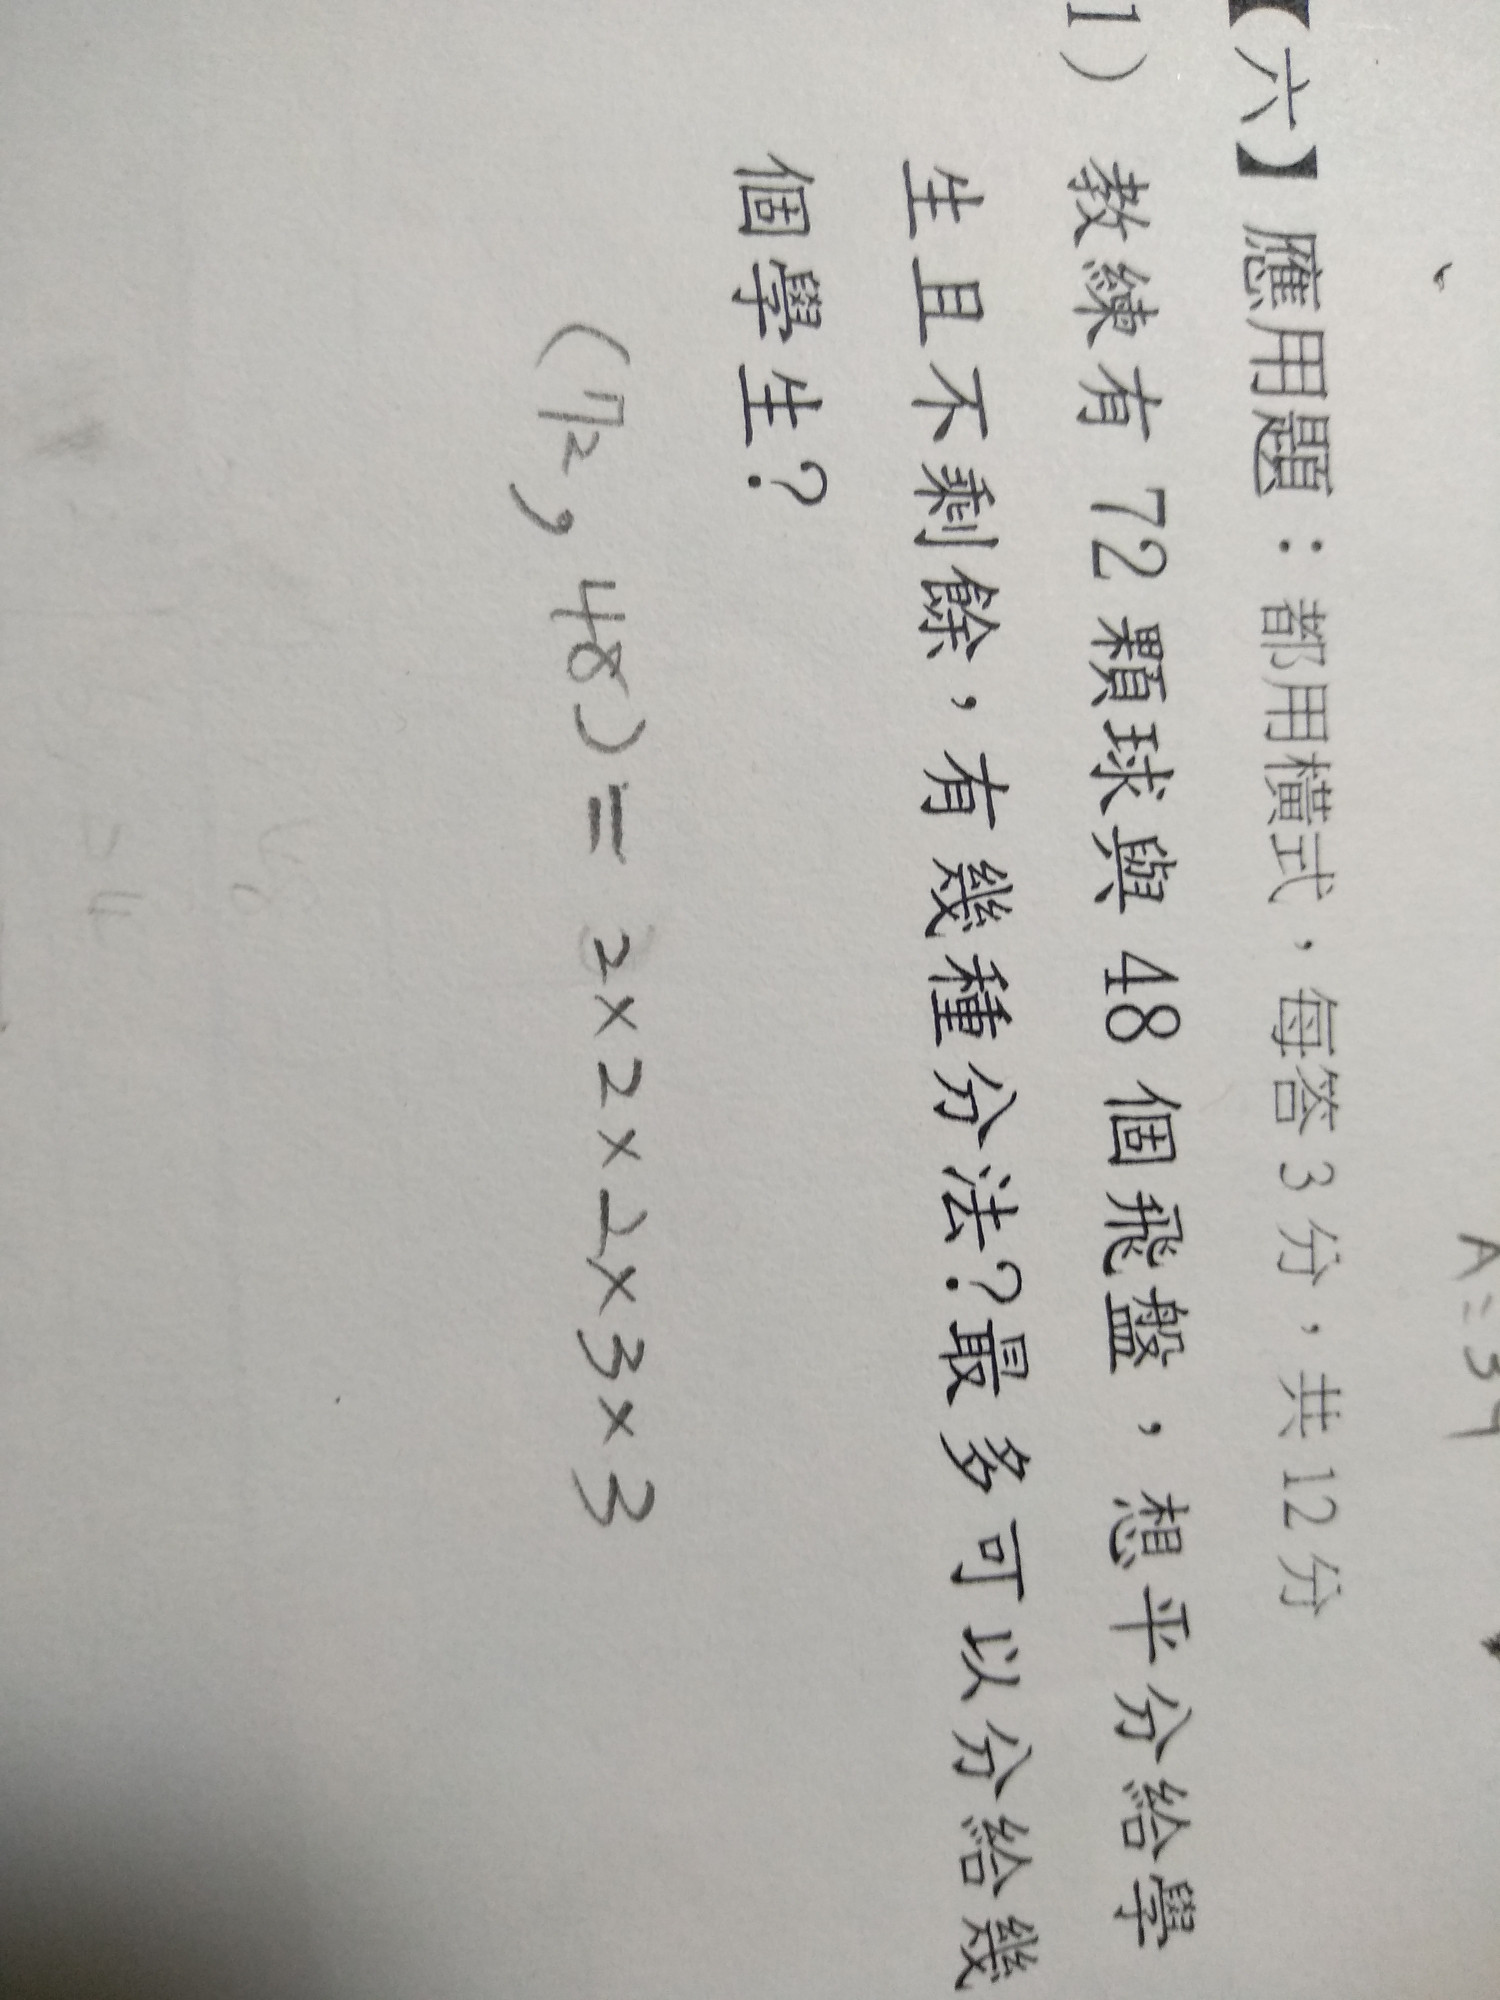 A=39
【六】應用題：都用橫式，每答3分，共12分
1) 教練有72顆球與48個飛盤，想平分給學
生且不剩餘，有幾種分法?最多可以分給幾
個學生?
(72,48)=2×2×2×3×3